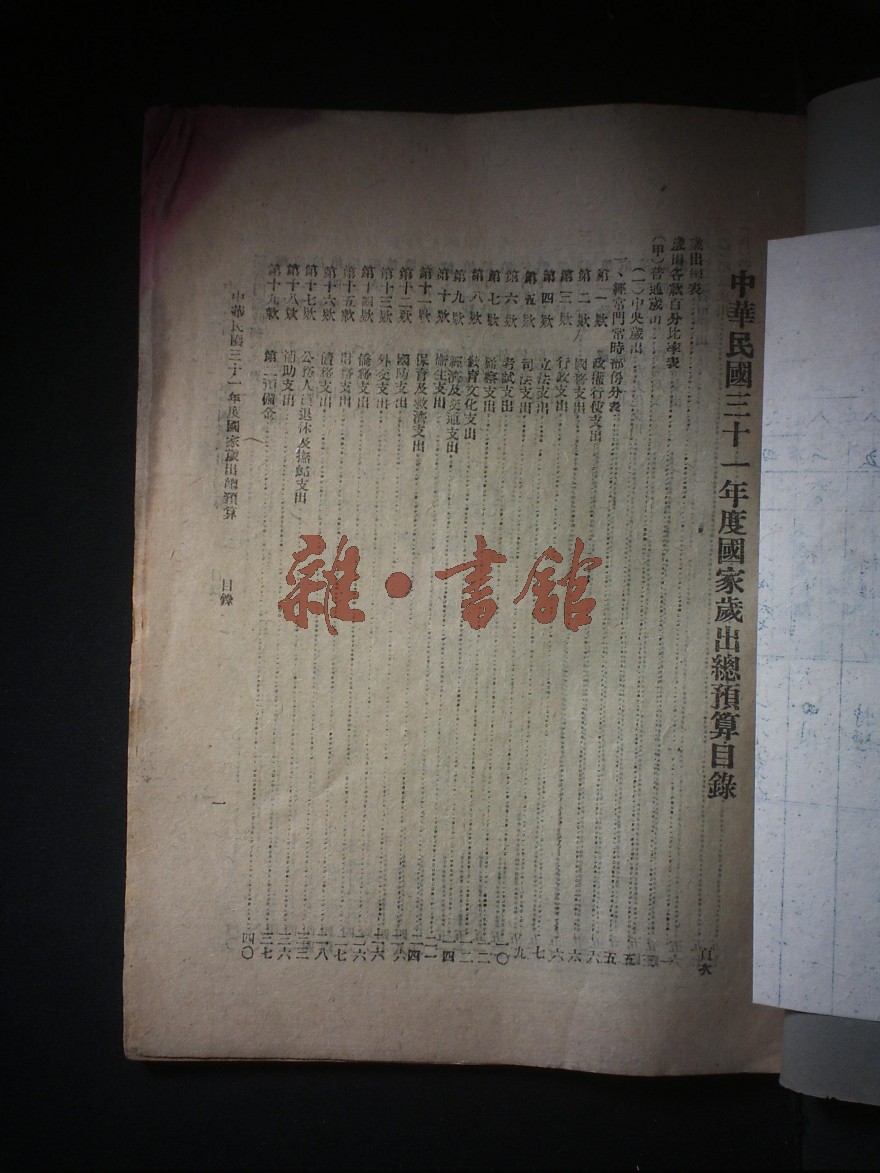 中華民國三十一年度國家歲出總預算目錄
頁次
歲出總表
歲出各款百分比率表
(甲)普通歲出
(一)中央歲出
一、經常門常時部份分表
第一款 政權行使支出
第二款 國務支出
第三款 行政支出
第四款 立法支出
第五款 司法支出
第六款 考試支出
第七款 監察支出
第八款 教育文化支出
第九款 經濟及交通支出
第十款 衛生支出
第十一款 保育及救濟支出
第十二款 國防支出
第十三款 外交支出
第十四款 僑務支出
第十五款 財務支出
第十六款 債務支出
第十七款 公務人員退休及撫卹支出
第十八款 補助支出
第十九款 第二預備金 四〇
中華民國三十一年度國家歲出總預算 目錄 一
雜·書館